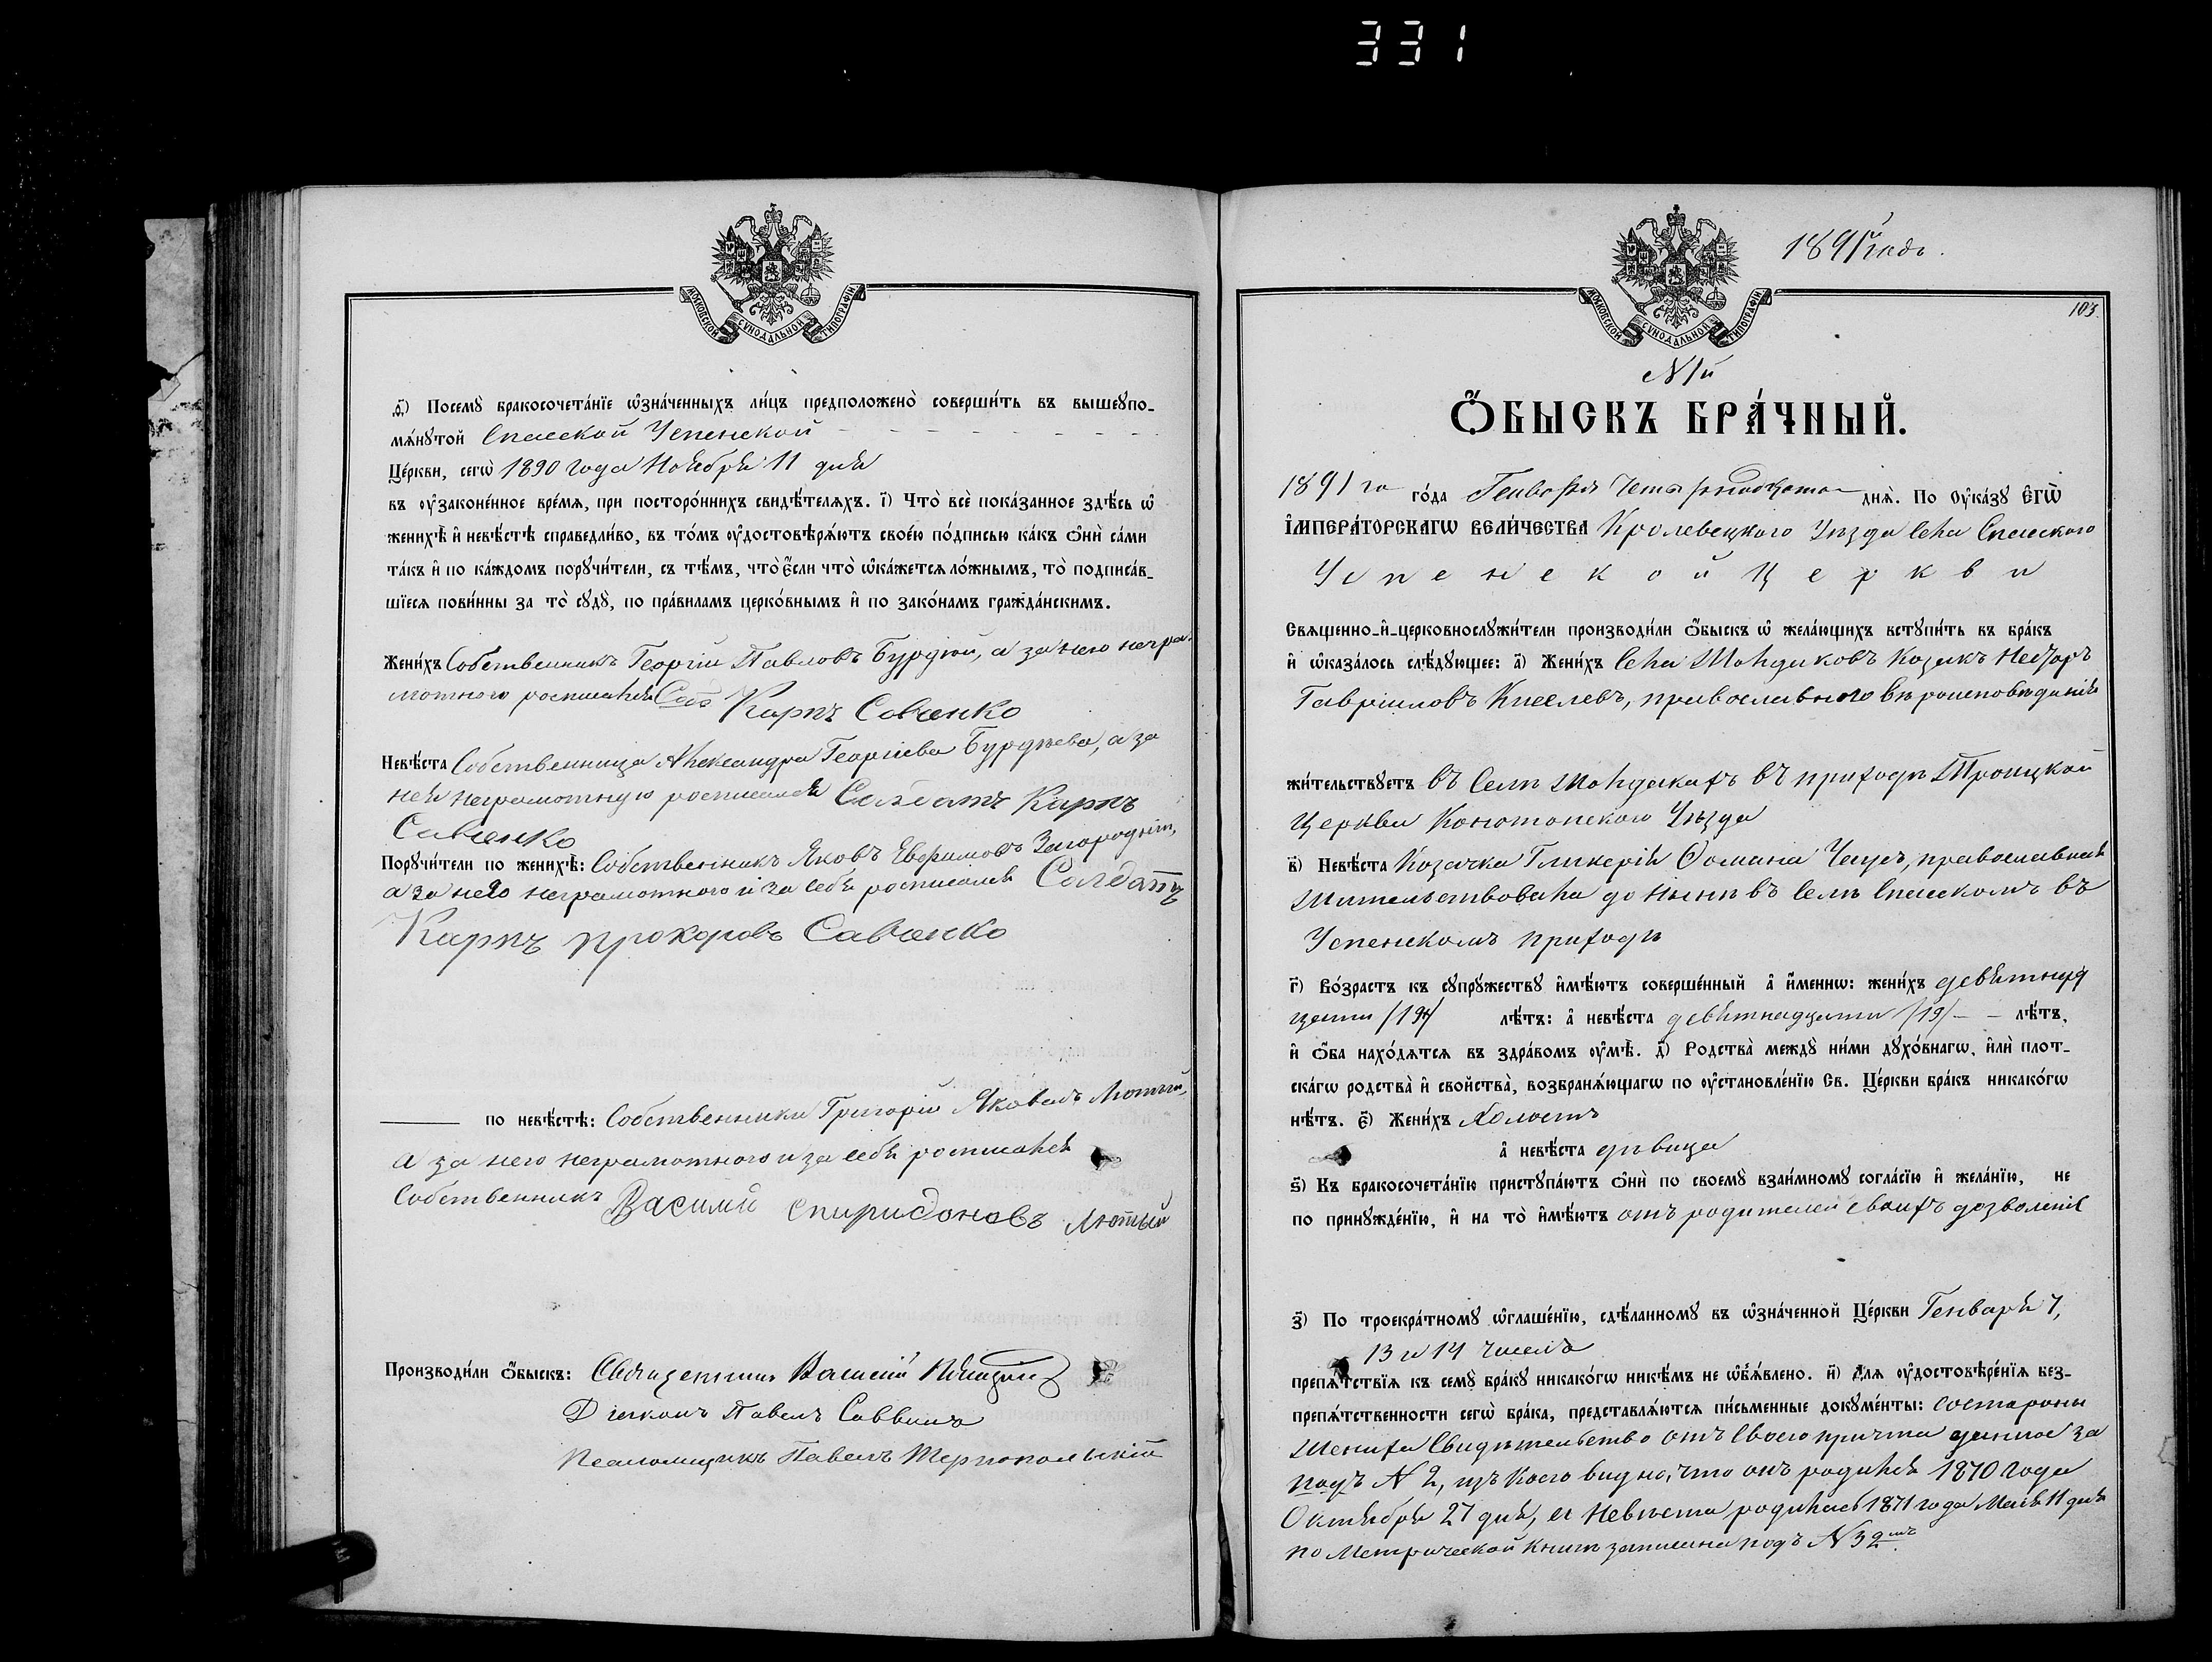 331
МОСКОВСКОЙ СѴНОДАЛЬНОЙ ТИПОГРАФІИ
ѳ҃) Посемꙋ̀ бракосочета́нїе ѡ҆зна́ченныхъ ли́цъ предположено̀ соверши́ть въ вышеꙋпо-
мѧ́нꙋтой Спасской Успенской
Це́ркви, сегѡ̀ 1890 года Ноября 11 дня
въ ᲂу҆законе́нное вре́мѧ, при посторо́ннихъ свидѣ́телѧхъ. і҃) Что̀ всѐ пока́занное здѣ́сь ѡ҆
женихѣ̀ и҆ невѣ́стѣ справедли́во, въ то́мъ ᲂу҆достовѣрѧ́ютъ свое́ю по́дписью ка́къ ѻ҆нѝ са́ми
та́къ и҆ по ка́ждомъ порꙋчи́тели, съ тѣ́мъ, что̀ є҆́сли что̀ ѡ҆ка́жетсѧ ло́жнымъ, то̀ подписа́в-
шїесѧ пови́нны за то̀ сꙋдꙋ̀, по пра́виламъ церко́внымъ и҆ по зако́намъ гражда́нскимъ.
Жени́хъ Собственникъ Георгій Павловъ Бурдюй, а за него негра-
мотного росписался Карпъ Савченко
Невѣ́ста Собственница Александра Георгіева Бурдѣева, а за
нея неграмотную росписался Солдатъ Карпъ
Савченко
Порꙋчи́тели по женихѣ̀: Собственникъ Яковъ Евфимовъ Загородній,
а за него неграмотного и за себя росписался Солдатъ
Карпъ прохоровъ Савченко
по невѣ́стѣ: Собственники Григорій Яковлевъ Лютый,
а за него неграмотного и за себя росписался
Собственникъ Василий спиридоновъ Лютый
Производи́ли ѻ҆́быскъ: Священникъ Василій
Діяконъ Павелъ Саввинъ
Псаломщикъ Павелъ Тернопольскій
1891 годъ.
МОСКОВСКОЙ СѴНОДАЛЬНОЙ ТИПОГРАФІИ
103.
N 1й
Ѻ҆́БЫСКЪ БРА́ЧНЫЙ.
1891 го го́да Генваря Четырнадцатого днѧ̀. По ᲂу҆ка́зꙋ Є҆ГѠ̀
І҆МПЕРА́ТОРСКАГѠ ВЕЛИ́ЧЕСТВА Кролевецкого Уѣзда Села Спасского
Успенской Церкви
Свѧщенно-и҆-церковнослꙋжи́тели производи́ли ѻ҆́быскъ ѡ҆ жела́ющихъ встꙋпи́ть въ бра́къ
и҆ ѡ҆каза́лось слѣ́дꙋющее: а҃) Жени́хъ Села Шондаковъ Козакъ Несторъ
Гавріиловъ Киселевъ, православного вѣроисповѣданія
жи́тельствꙋетъ въ Селѣ Шондакахъ въ приходѣ Троицкой
Церкви Конотопского Уѣзда
в҃) Невѣ́ста Козачка Гликерія Ѳомина Чаусъ, православная
Жительствовала до нынѣ въ Селѣ Спасскомъ въ
Успенскомъ приходѣ
г҃) Во́зрастъ къ сꙋпрꙋ́жествꙋ и҆мѣ́ютъ соверше́нный а҆̀ и҆́меннѡ: жени́хъ девятнад
цати /19/ лѣ́тъ: а҆̀ невѣ́ста девятнадцати /19/ - - лѣ́тъ,
и҆ ѻ҆́ба нахо́дѧтсѧ въ здра́вомъ ᲂу҆мѣ̀. д҃) Родства̀ междꙋ̀ ни́ми дꙋхо́внагѡ, и҆лѝ плот-
ска́гѡ родства̀ и҆ свойства̀, возбранѧ́ющагѡ по ᲂу҆становле́нїю Св. Це́ркви бра́къ никако́гѡ
нѣ́тъ. є҃) Жени́хъ Холостъ
а҆̀ невѣ́ста дѣвица
ѕ҃) Къ бракосочета́нїю пристꙋпа́ютъ ѻ҆нѝ по своемꙋ̀ взаи́мномꙋ согла́сїю и҆ жела́нїю, не
по принꙋжде́нїю, и҆ на то̀ и҆мѣ́ютъ отъ родителей своихъ дозволеніе
з҃) По троекра́тномꙋ ѡ҆глаше́нїю, сдѣ́ланномꙋ въ ѡ҆зна́ченной Це́ркви Генваря 7,
13 и 14 чиселъ
препѧ́тствїѧ къ семꙋ̀ бра́кꙋ никако́гѡ никѣ́мъ не ѡ҆б̾ѧ́влено. и҃) Для ᲂу҆достовѣре́нїѧ без-
препѧ́тственности сегѡ̀ бра́ка, представлѧ́ютсѧ пи́сьменные докꙋме́нты: состороны
Жениха Свидѣтельство отъ Своего причта данное за
подъ N 2, изъ коего видно, что онъ родился 1870 года
Октября 27 дня, а Невѣста родилась 1871 года Мая 11 дня
по Метрической книгѣ записана подъ N 32мъ.